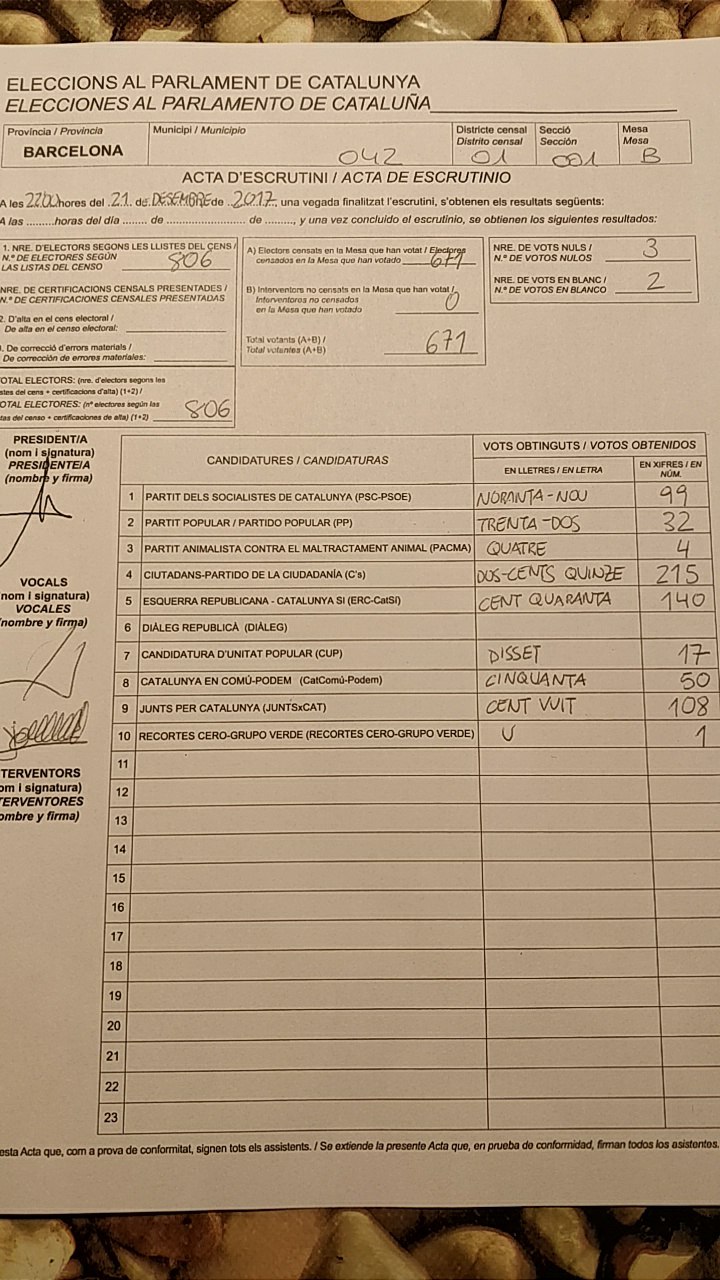 ELECCIONS AL PARLAMENT DE CATALUNYA
ELECCIONES AL PARLAMENTO DE CATALUÑA
Província / Provincia
BARCELONA
Municipi / Municipio
042
Districte censal
Distrito censal
01
Secció
Sección
001
Mesa
Mesa
B
ACTA D'ESCRUTINI / ACTA DE ESCRUTINIO
A les 22:00 hores del 21 de DESEMBRE de 2017, una vegada finalitzat l'escrutini, s'obtenen els resultats següents:
A las ......... horas del día ........ de ........................ de ........, y una vez concluido el escrutinio, se obtienen los siguientes resultados:
1. NRE. D'ELECTORS SEGONS LES LLISTES DEL CENS /
N.º DE ELECTORES SEGÚN
LAS LISTAS DEL CENSO 806
NRE. DE CERTIFICACIONS CENSALS PRESENTADES /
N.º DE CERTIFICACIONES CENSALES PRESENTADAS
2. D'alta en el cens electoral /
De alta en el censo electoral:
. De correcció d'errors materials /
De corrección de errores materiales:
OTAL ELECTORS: (nre. d'electors segons les
stes del cens + certificacions d'alta) (1+2) /
OTAL ELECTORES: (nº electores según las
tas del censo + certificaciones de alta) (1+2) 806
A) Electors censats en la Mesa que han votat / Electores
censados en la Mesa que han votado 671
B) Interventors no censats en la Mesa que han votat /
Interventores no censados
en la Mesa que han votado 0
Total votants (A+B) /
Total votantes (A+B) 671
NRE. DE VOTS NULS /
N.º DE VOTOS NULOS 3
NRE. DE VOTS EN BLANC /
N.º DE VOTOS EN BLANCO 2
PRESIDENT/A
(nom i signatura)
PRESIDENTE/A
(nombre y firma)
VOCALS
nom i signatura)
VOCALES
nombre y firma)
TERVENTORS
om i signatura)
TERVENTORES
ombre y firma)
CANDIDATURES / CANDIDATURAS
VOTS OBTINGUTS / VOTOS OBTENIDOS
EN LLETRES / EN LETRA
EN XIFRES / EN NÚM.
1 PARTIT DELS SOCIALISTES DE CATALUNYA (PSC-PSOE) NORANTA-NOU 99
2 PARTIT POPULAR / PARTIDO POPULAR (PP) TRENTA-DOS 32
3 PARTIT ANIMALISTA CONTRA EL MALTRACTAMENT ANIMAL (PACMA) QUATRE 4
4 CIUTADANS-PARTIDO DE LA CIUDADANÍA (C's) DOS-CENTS QUINZE 215
5 ESQUERRA REPUBLICANA - CATALUNYA SÍ (ERC-CatSí) CENT QUARANTA 140
6 DIÀLEG REPUBLICÀ (DIÀLEG)
7 CANDIDATURA D'UNITAT POPULAR (CUP) DISSET 17
8 CATALUNYA EN COMÚ-PODEM (CatComú-Podem) CINQUANTA 50
9 JUNTS PER CATALUNYA (JUNTSxCAT) CENT VUIT 108
10 RECORTES CERO-GRUPO VERDE (RECORTES CERO-GRUPO VERDE) U 1
11
12
13
14
15
16
17
18
19
20
21
22
23
esta Acta que, com a prova de conformitat, signen tots els assistents. / Se extiende la presente Acta que, en prueba de conformidad, firman todos los asistentes.